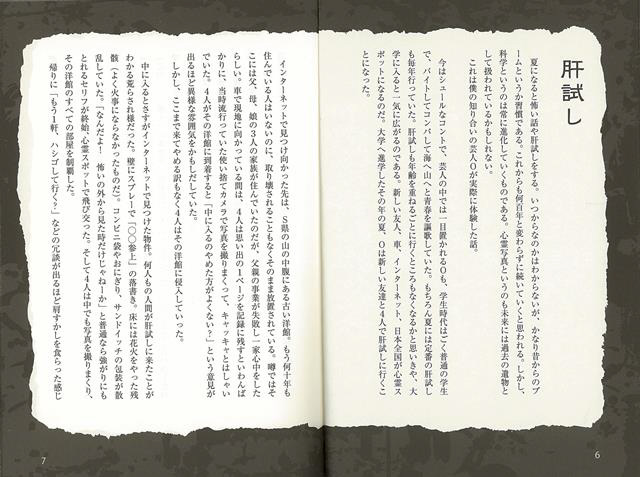 肝試し
夏になると怖い話や肝試しをする。いつからなのかはわからないが、かなり昔からのブ
ームというか習慣である。これからも何百年と変わらずに続いていくと思われる。しかし、
科学というのは常に進化していくものである。心霊写真というのも未来には過去の遺物と
して扱われているかもしれない。
これは僕の知り合いの芸人Oが実際に体験した話。
今はシュールなコントで、芸人の中では一目置かれるOも、学生時代はごく普通の学生
で、バイトしてコンパして海へ山へと青春を謳歌していた。もちろん夏には定番の肝試し
も毎年行っていた。肝試しも年齢を重ねるごとに行くところもなくなるかと思いきや、大
学に入ると一気に広がるのである。新しい友人、車、インターネット、日本全国が心霊ス
ポットになるのだ。大学へ進学したその年の夏、Oは新しい友達と4人で肝試しに行くこ
とになった。
6
インターネットで見つけ向かった先は、S県の山の中腹にある古い洋館。もう何十年も
住んでいる人はいないのに、取り壊されることもなくそのまま放置されている。噂ではそ
こには父、母、娘の3人の家族が住んでいたのだが、父親の事業が失敗し一家心中をした
らしい。車で現地に向かっている間は、4人は思い出の1ページを記録に残すといわんば
かりに、当時流行っていた使い捨てカメラで写真を撮りまくって、キャッキャとはしゃい
でいた。4人がその洋館に到着すると「中に入るのやめた方がよくない?」という意見が
出るほど異様な雰囲気をかもしだしていた。
しかし、ここまで来てやめる訳もなく4人はその洋館に侵入していった。
中に入るとさすがインターネットで見つけた物件。何人もの人間が肝試しに来たことが
わかる荒らされ様だった。壁にスプレーで「〇〇参上」の落書き。床には花火をやった残
骸（よく火事にならなかったものだ）。コンビニ袋やおにぎり、サンドイッチの包装が散
乱していた。「なんだよー　怖いの外から見た時だけじゃねーか」と普通なら強がりにも
とれるセリフが終始、心霊スポットで飛び交った。そして4人は中でも写真を撮りまくり、
その洋館のすべての部屋を制覇した。
帰りに「もう1軒、ハシゴして行く?」などの冗談が出るほど肩すかしを食らった感じ
7